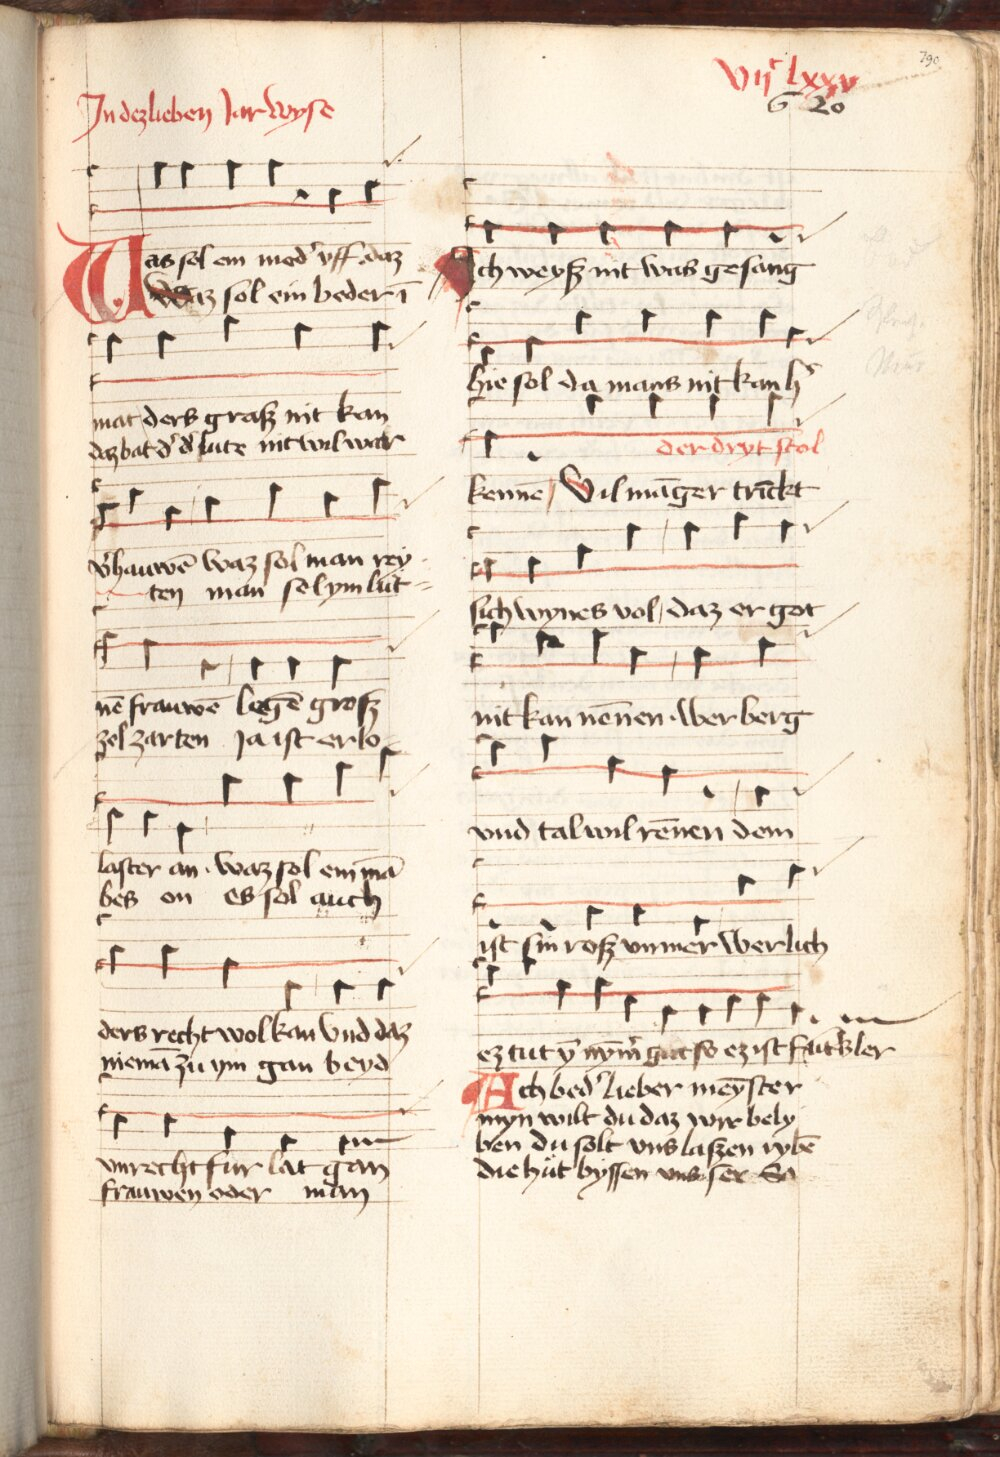 790
Vijc lxxv
G 20
In dez lieben Jar wyse
Was sol em mod' vff daz
Waz sol ein beder ī
mat ders graß nit kan
daz bat d' d' lute nit wil war
v'hauwē waz sol man rey
ten man sol ym lut
nē frauwē legē groß
zel zarten Ja ist er lo
laster an · waz sol em mā
bes on es sol auch
ders recht wol kan vnd daz
niemā zu ym gan beyd
vnrecht fur lat gan
frauwen oder man
Ich weyß nit was gesang
hie sol da mans nit kan h'
der dryt stol
kennē / Vil māger trīckt
sich wynes vol / daz er got
nit kan nēnen · wer berg
vnd tal wil rēnen dem
ist sin roß vnmer werlich
ez tut ȳ nym' gut so ez ist
Ach bed' lieber meyster
myn wilt du daz wir bely
ben du solt vns laßen rybē
die hut byssen vnser So